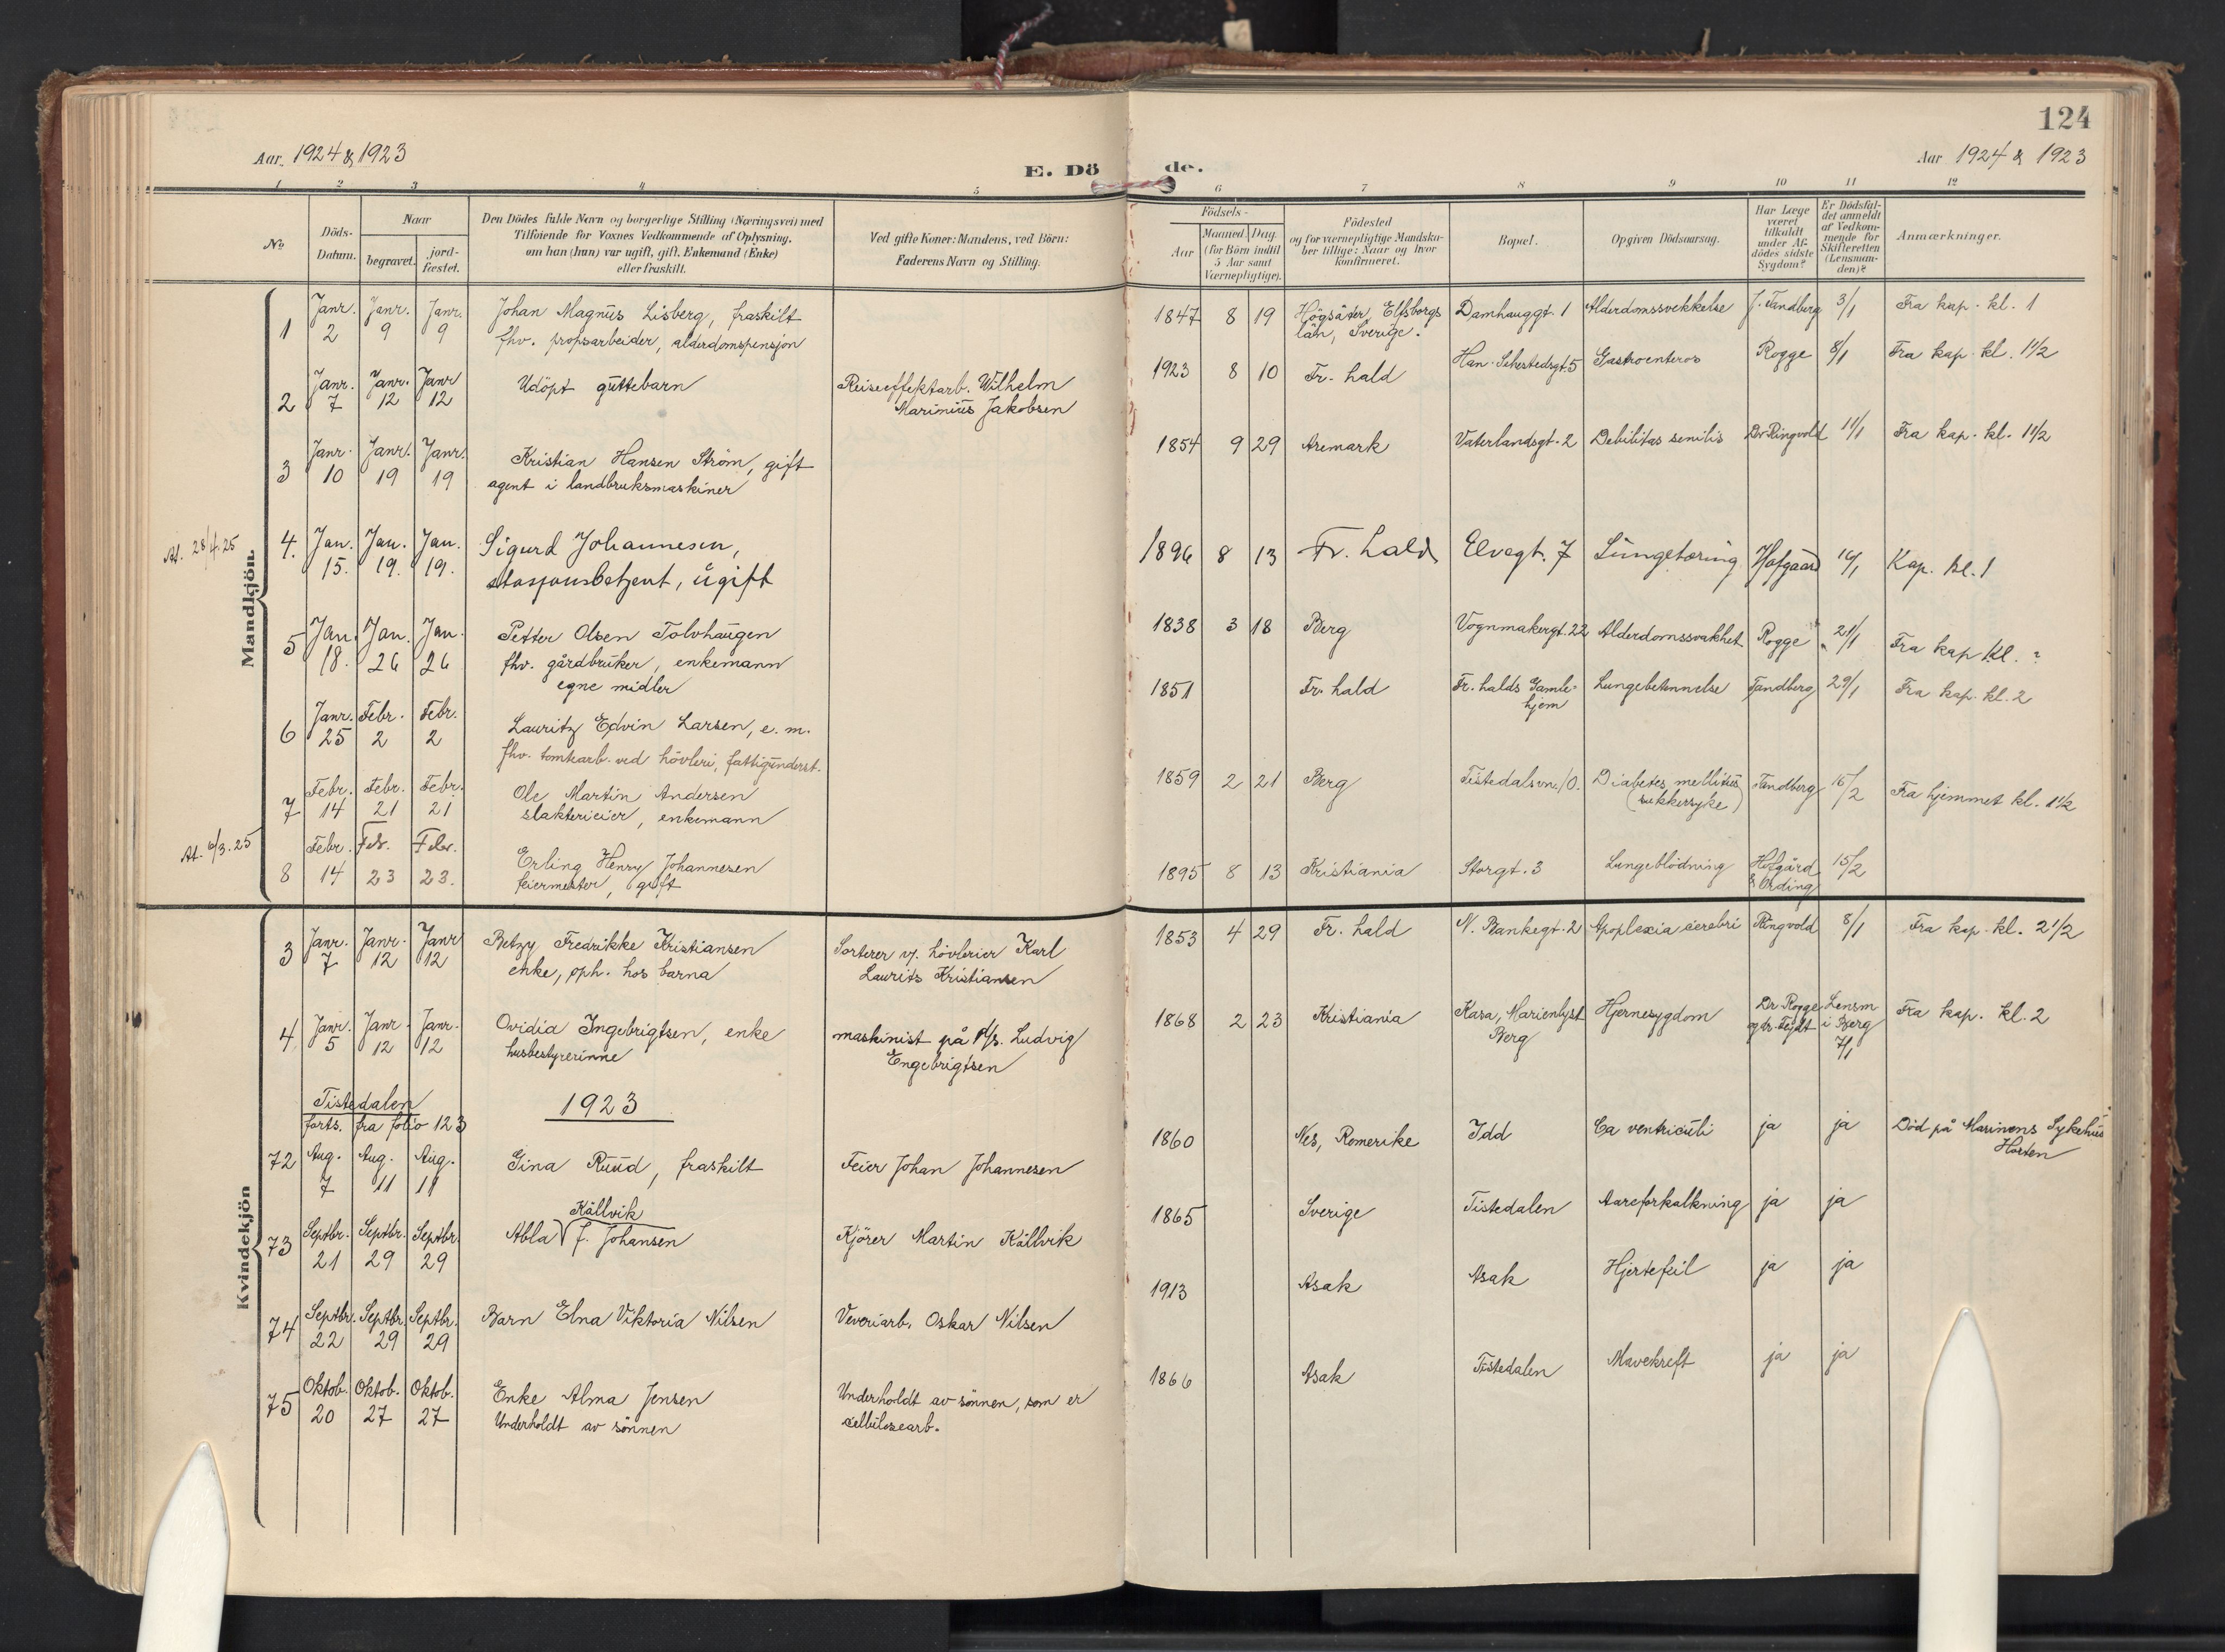 124
Aar. 1924 & 1923
E. Dö
de.
Aar 1924 & 1923
1 2 3 4 5 6 7 8 9 10 11 12
No
Döds-
Datum.
Naar
begravet.
jord-
fæstet.
Den Dödes fulde Navn og borgerlige Stilling (Næringsvei) med
Tilföiende for Voxnes Vedkommende af Oplysning,
om han (hun) var ugift, gift, Enkemand (Enke)
eller fraskilt.
Ved gifte Koner: Mandens, ved Börn:
Faderens Navn og Stilling.
Födsels-
Aar
Maaned
Dag.
(for Börn indtil
5 Aar samt
Værnepligtige).
Födested
og for værnepligtige Mandska-
ber tillige: Naar og hvor
konfirmeret.
Bopæl.
Opgiven Dödsaarsag.
Har Læge
været
tilkaldt
under Af-
dödes sidste
Sygdom?
Er Dödsfal-
det anmeldt
af Vedkom-
mende for
Skifteretten
(Lensman-
den)?
Anmærkninger.
Mandkjön.
1 Janr. 2 Janr. 9 Janr. 9
Johan Magnus Lisberg, fraskilt
fhv. propsarbeider, alderdomspensjon
1847 8 19 Högsäter, Elfsborgs
län, Sverige.
Damhauggt. 1 Alderdomssvekkelse J. Tandberg 3/1 Fra kap. kl. 1
2 Janr. 7 Janr. 12 Janr 12
Udöpt guttebarn
Reiseeffektarb. Wilhelm
Marinius Jakobsen
1923 8 10 Fr. hald Han. Sehestedsgt. 5 Gastroenteros Rogge 8/1 Fra kap. kl. 1 1/2
3 Janr. 10 Janr. 19 Janr. 19
Kristian Hansen Ström, gift
agent i landbruksmaskiner
1854 9 29 Aremark Vaterlandsgt. 2 Debilitas senilis Dr. Ringvold 11/1 Fra kap. kl. 1 1/2
At. 28/4.25
4. Jan. 15. Jan. 19. Jan. 19.
Sigurd Johannesen,
stasjonsbetjent, ugift
1896 8 13 Fr. hald Elvegt. 7 Lungetæring Hofgaard 16/1 Kap. kl. 1
5 Jan. 18. Jan. 26 Jan. 26
Petter Olsen Tolvhaugen
fhv. gårdbruker, enkemann
egne midler
1838 3 18 Berg Vognmakergt. 22 Alderdomssvakhet Rogge 21/1 Fra kap kl. ?
6 Janr. 25 Febr. 2 Febr. 2
Lauritz Edvin Larsen, e. m.
fhv. tomtearb. ved hövleri, fattigunderst.
1851 Fr. hald Fr. halds Gamle-
hjem
Lungebetennelse Tandberg 29/1 Fra kap. kl. 2
7 Febr. 14 Febr. 21 Febr. 21
Ole Martin Andersen
slaktericier, enkemann
1859 2 21 Berg Tistedalsvn. 10. Diabetes mellitus
(sukkersyke)
Tandberg 16/2 Fra hjemmet kl. 1 1/2
At. 6/3.25
8 Febr. 14 Feb. 23 Febr. 23.
Erling Henry Johannesen
feiermester, gift
1895 8 13 Kristiania Storgt. 3 Lungeblödning Hofgård
& Ording
15/2
Kvindekjön
3 Janr. 7 Janr. 12 Janr 12
Betzy Fredrikke Kristiansen
enke, oph. hos barna
Sorterer v. hövlerier Karl
Laurits Kristiansen
1853 4 29 Fr. hald N. Bankegt. 2 Apoplexia cerebri Ringvold 8/1 Fra kap. kl. 2 1/2
4 Janr. 5 Janr. 12 Janr. 12
Ovidia Ingebrigtsen, enke
husbestyrerinne
maskinist på D/s. Ludvig
Engebrigtsen
1868 2 23 Kristiania Kasa, Marienlyst
Berg
Hjernesygdom Dr Rogge
og dr. Tejdt
Lensm
i Berg
7/1
Fra kap. kl. 2
Tistedalen
forts. fra folio 123
1923
72 Aug. 7 Aug. 11 Aug. 11
Gina Ruud, fraskilt
Feier Johan Johannesen
1860 Nes, Romerike Idd Ca ventriculi ja ja Död på Marinens Sykehus
Horten
73 Septbr. 21 Septbr. 29 Septbr. 29
Källvik
Abla f. Johansen
Kjörer Martin Källvik
1865 Sverige Tistedalen Aareforkalkning ja ja
74 Septbr. 22 Septbr. 29 Septbr. 29
Barn Elna Viktoria Nilsen
Veveriarb. Oskar Nilsen
1913 Asak Asak Hjertefeil ja ja
75 Oktob. 20 Oktob. 27 Oktob. 27
Enke Alma Jensen
Underholdt av sönnen
Underholdt av sönnen, som er
cellulosearb.
1866 Asak Tistedalen Mavekreft ja ja